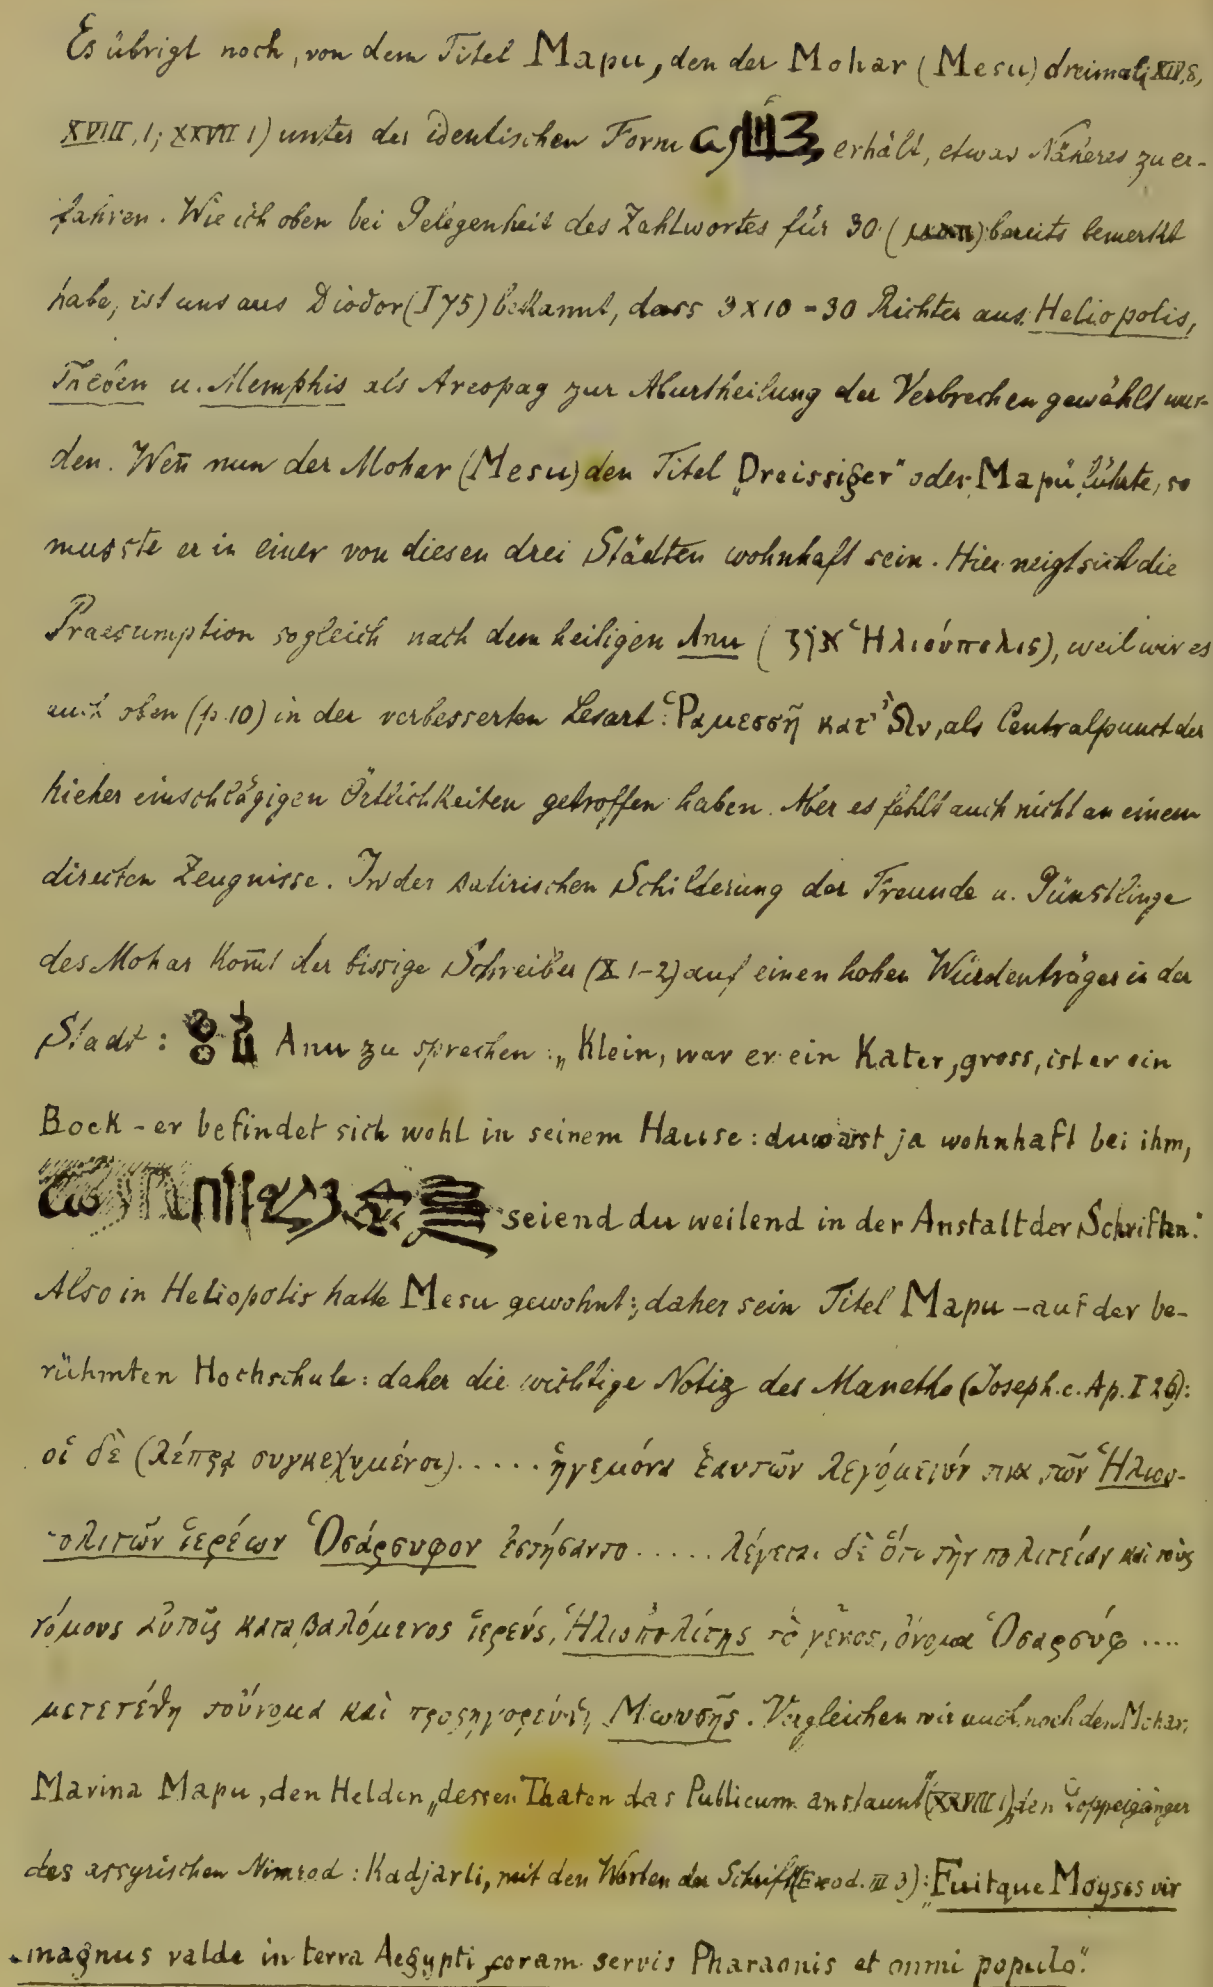 Es übrigt noch, von dem Titel Mapu, den der Mohar (Mesu) dreimal (XIV, 8,
XVIII, 1; XXVII 1) unter der identischen Form erhält, etwas Näheres zu er-
fahren. Wie ich oben bei Gelegenheit des Zahlwortes für 30 ( ) bereits bemerkt
habe, ist uns aus Diodor (I 75) bekannt, dass 3 x 10 = 30 Richter aus Heliopolis,
Theben u. Memphis als Areopag zur Aburtheilung der Verbrechen gewählt wur-
den. Weñ nun der Mohar (Mesu) den Titel „Dreissiger" oder „Mapu" führte, so
musste er in einer von diesen drei Städten wohnhaft sein. Hier neigt sich die
Praesumption sogleich nach dem heiligen Anu ( Ἡλιούπολις), weil wir es
auch oben (p. 10) in der verbesserten Lesart: Ῥαμεσσῆ κατ' Ὢν, als Centralpunct der
hieher einschlägigen Örtlichkeiten getroffen haben. Aber es fehlt auch nicht an einem
directen Zeugnisse. In der satirischen Schilderung der Freunde u. Günstlinge
des Mohar kom̄t der bissige Schreiber (X 1-2) auf einen hohen Würdenträger in der
Stadt: Anu zu sprechen: „Klein, war er ein Kater, gross, ist er ein
Bock - er befindet sich wohl in seinem Hause: du warst ja wohnhaft bei ihm,
seiend du weilend in der Anstalt der Schriften."
Also in Heliopolis hatte Mesu gewohnt; daher sein Titel Mapu - auf der be-
rühmten Hochschule: daher die wichtige Notiz des Manetho (Joseph. c. Ap. I 26):
οἱ δὲ (λέπρᾳ συγκεχυμένοι) ..... ἡγεμόνα ἑαυτῶν λεγόμενόν τινα τῶν Ἡλιου-
-πολιτῶν ἱερέων Ὀσάρσυφον ἐστήσαντο ..... λέγεται δὲ ὅτι τὴν πολιτείαν καὶ τοὺς
νόμους αὐτοῖς καταβαλόμενος ἱερεύς, Ἡλιοπολίτης τὸ γένος, ὄνομα Ὀσαρσύφ ....
μετετέθη τοὔνομα καὶ προσηγορεύθη Μωυσῆς. Vergleichen wir auch noch den Mohar,
Marina Mapu, den Helden, „dessen Thaten das Publicum anstaunt" (XXVIII 1), den Doppelgänger
des assyrischen Nimrod: Kadjarti, mit den Worten der Schrift (Exod. III 3): „Fuitque Moyses vir
magnus valde in terra Aegypti coram servis Pharaonis et omni populo."